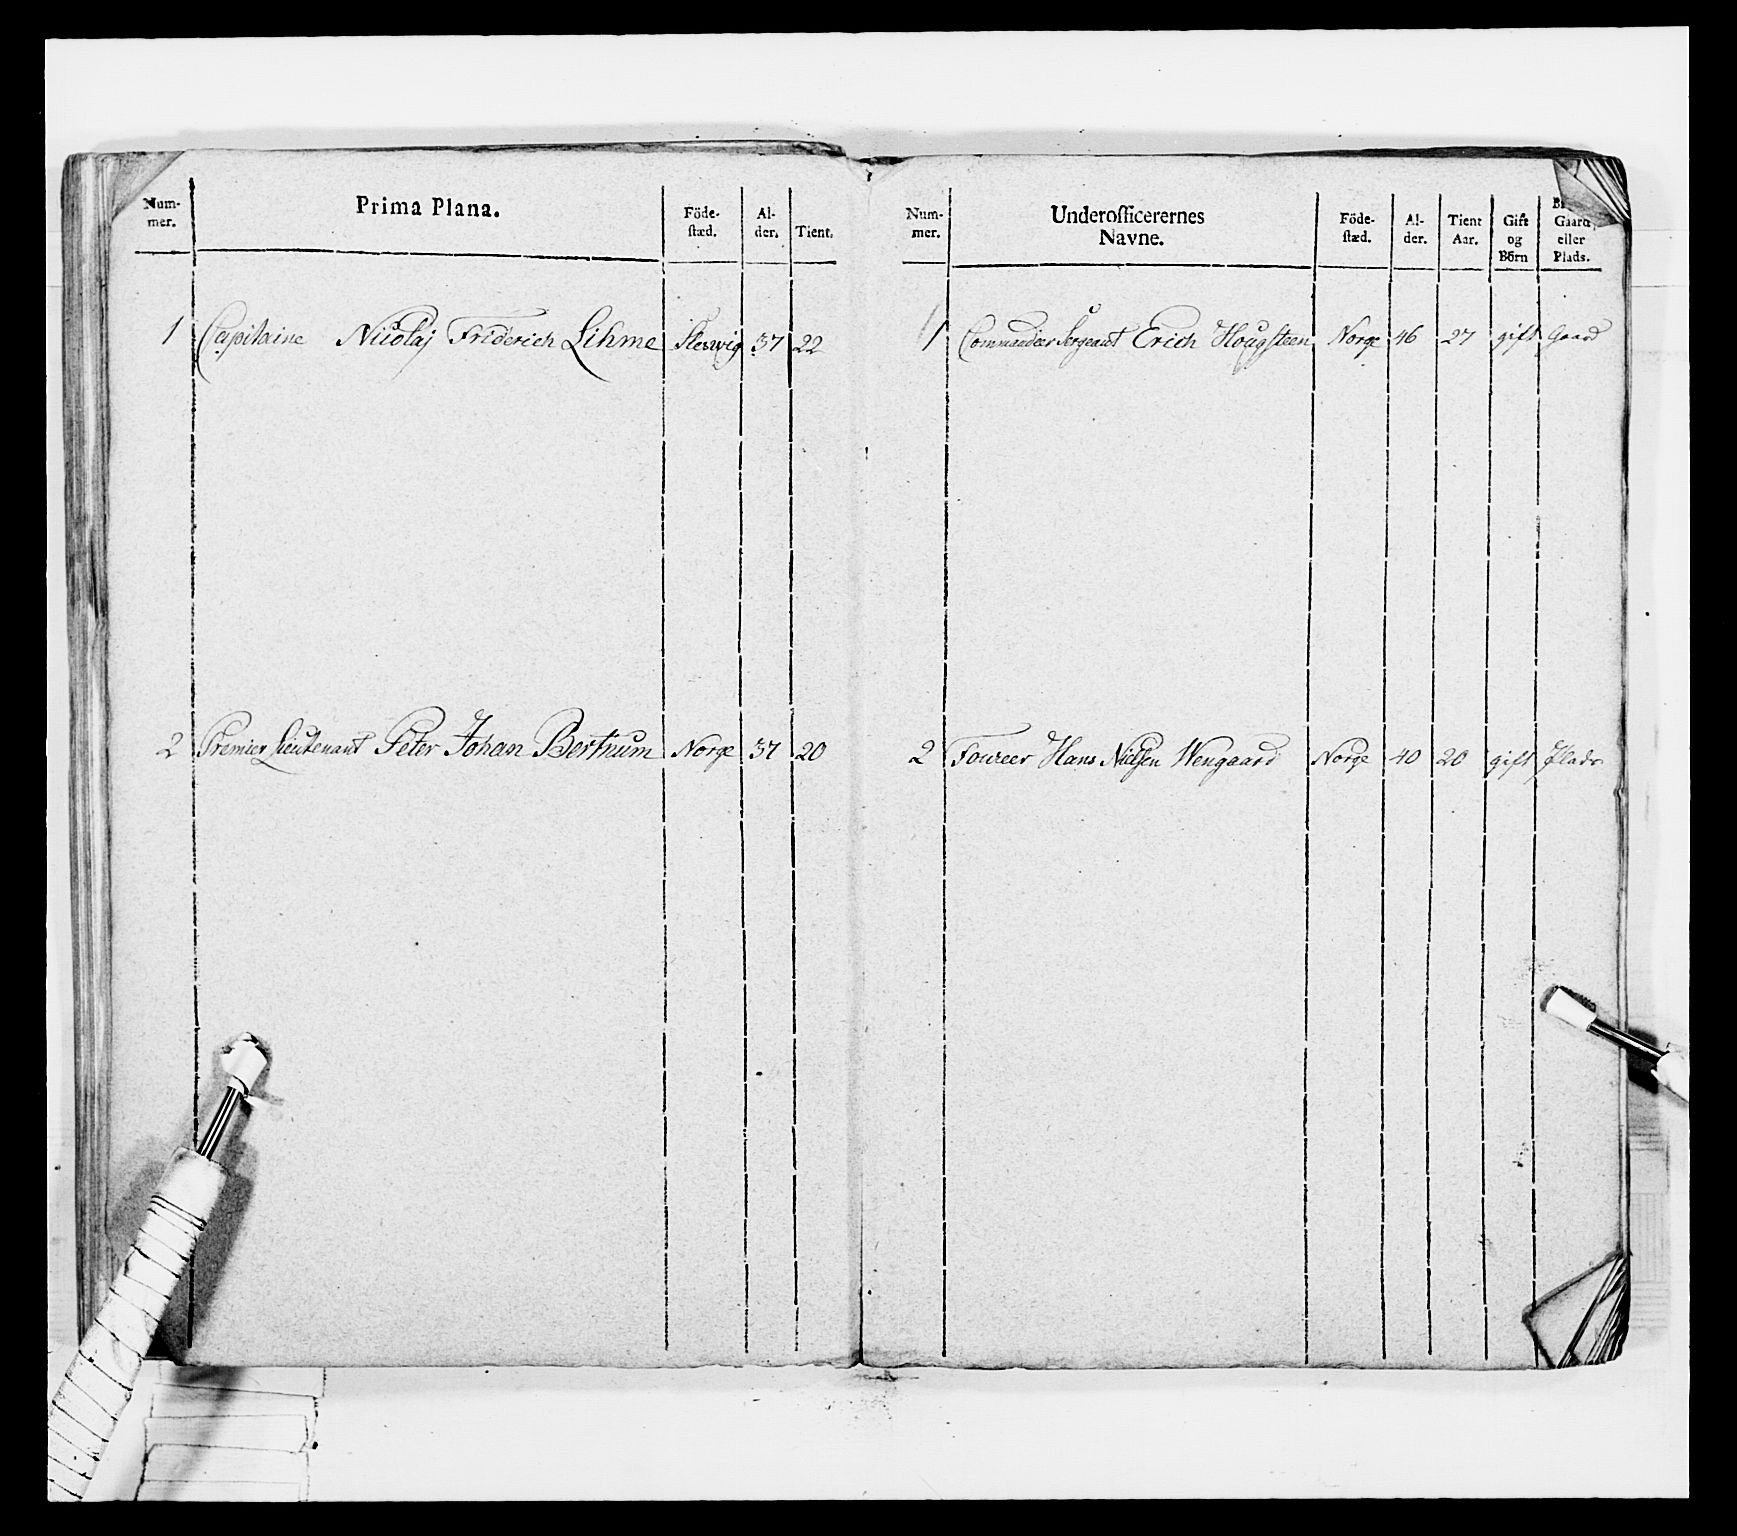 Num-
mer.
Prima Plana.
Föde-
stæd.
Al-
der.
Tient.
1 Capitaine Nicolaj Friderich Lihme Sleswig 37 22
2 Premier Lieutenant Peter Johan Bertnum Norge 37 20
Num-
mer.
Underofficerernes
Navne.
Föde-
stæd.
Al-
der.
Tient
Aar.
Gift
og
Börn
Gaard,
eller
Plads.
1 Commandeer Sergeant Erich Hougsteen Norge 46 27 gift Gaard
2 Foureer Hans Nielsen Wengaard Norge 40 20 gift Plads